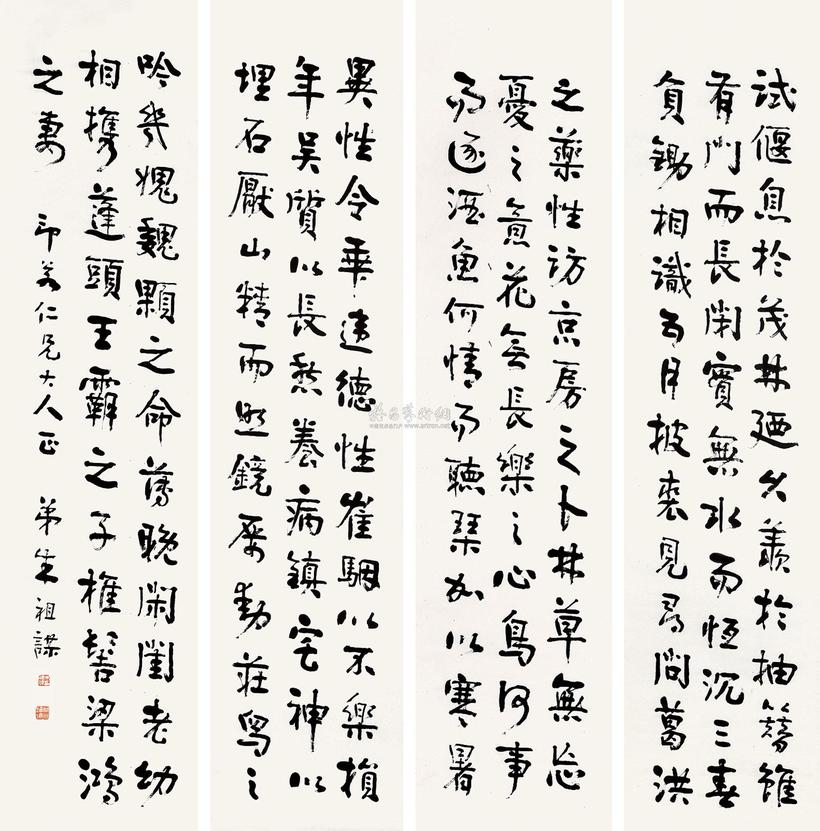 試偃息於茂林廼久羨於抽簪雖
有門而長閉實無水而恆沉三春
負鋤相識五月披裘見尋問葛洪
之藥性訪京房之卜林草無忘
憂之意花無長樂之心鳥何事
而逐酒魚何情而聽琴加以寒暑
異性令乖違德性崔駰以不樂損
年吳質以長愁養病鎮宅神以
埋石厭山精而照鏡屢動莊舄之
吟幾愧魏顆之命薄晚閑閨老幼
相攜蓬頭王霸之子椎髻梁鴻
之妻 印若仁兄大人正 弟朱祖謀